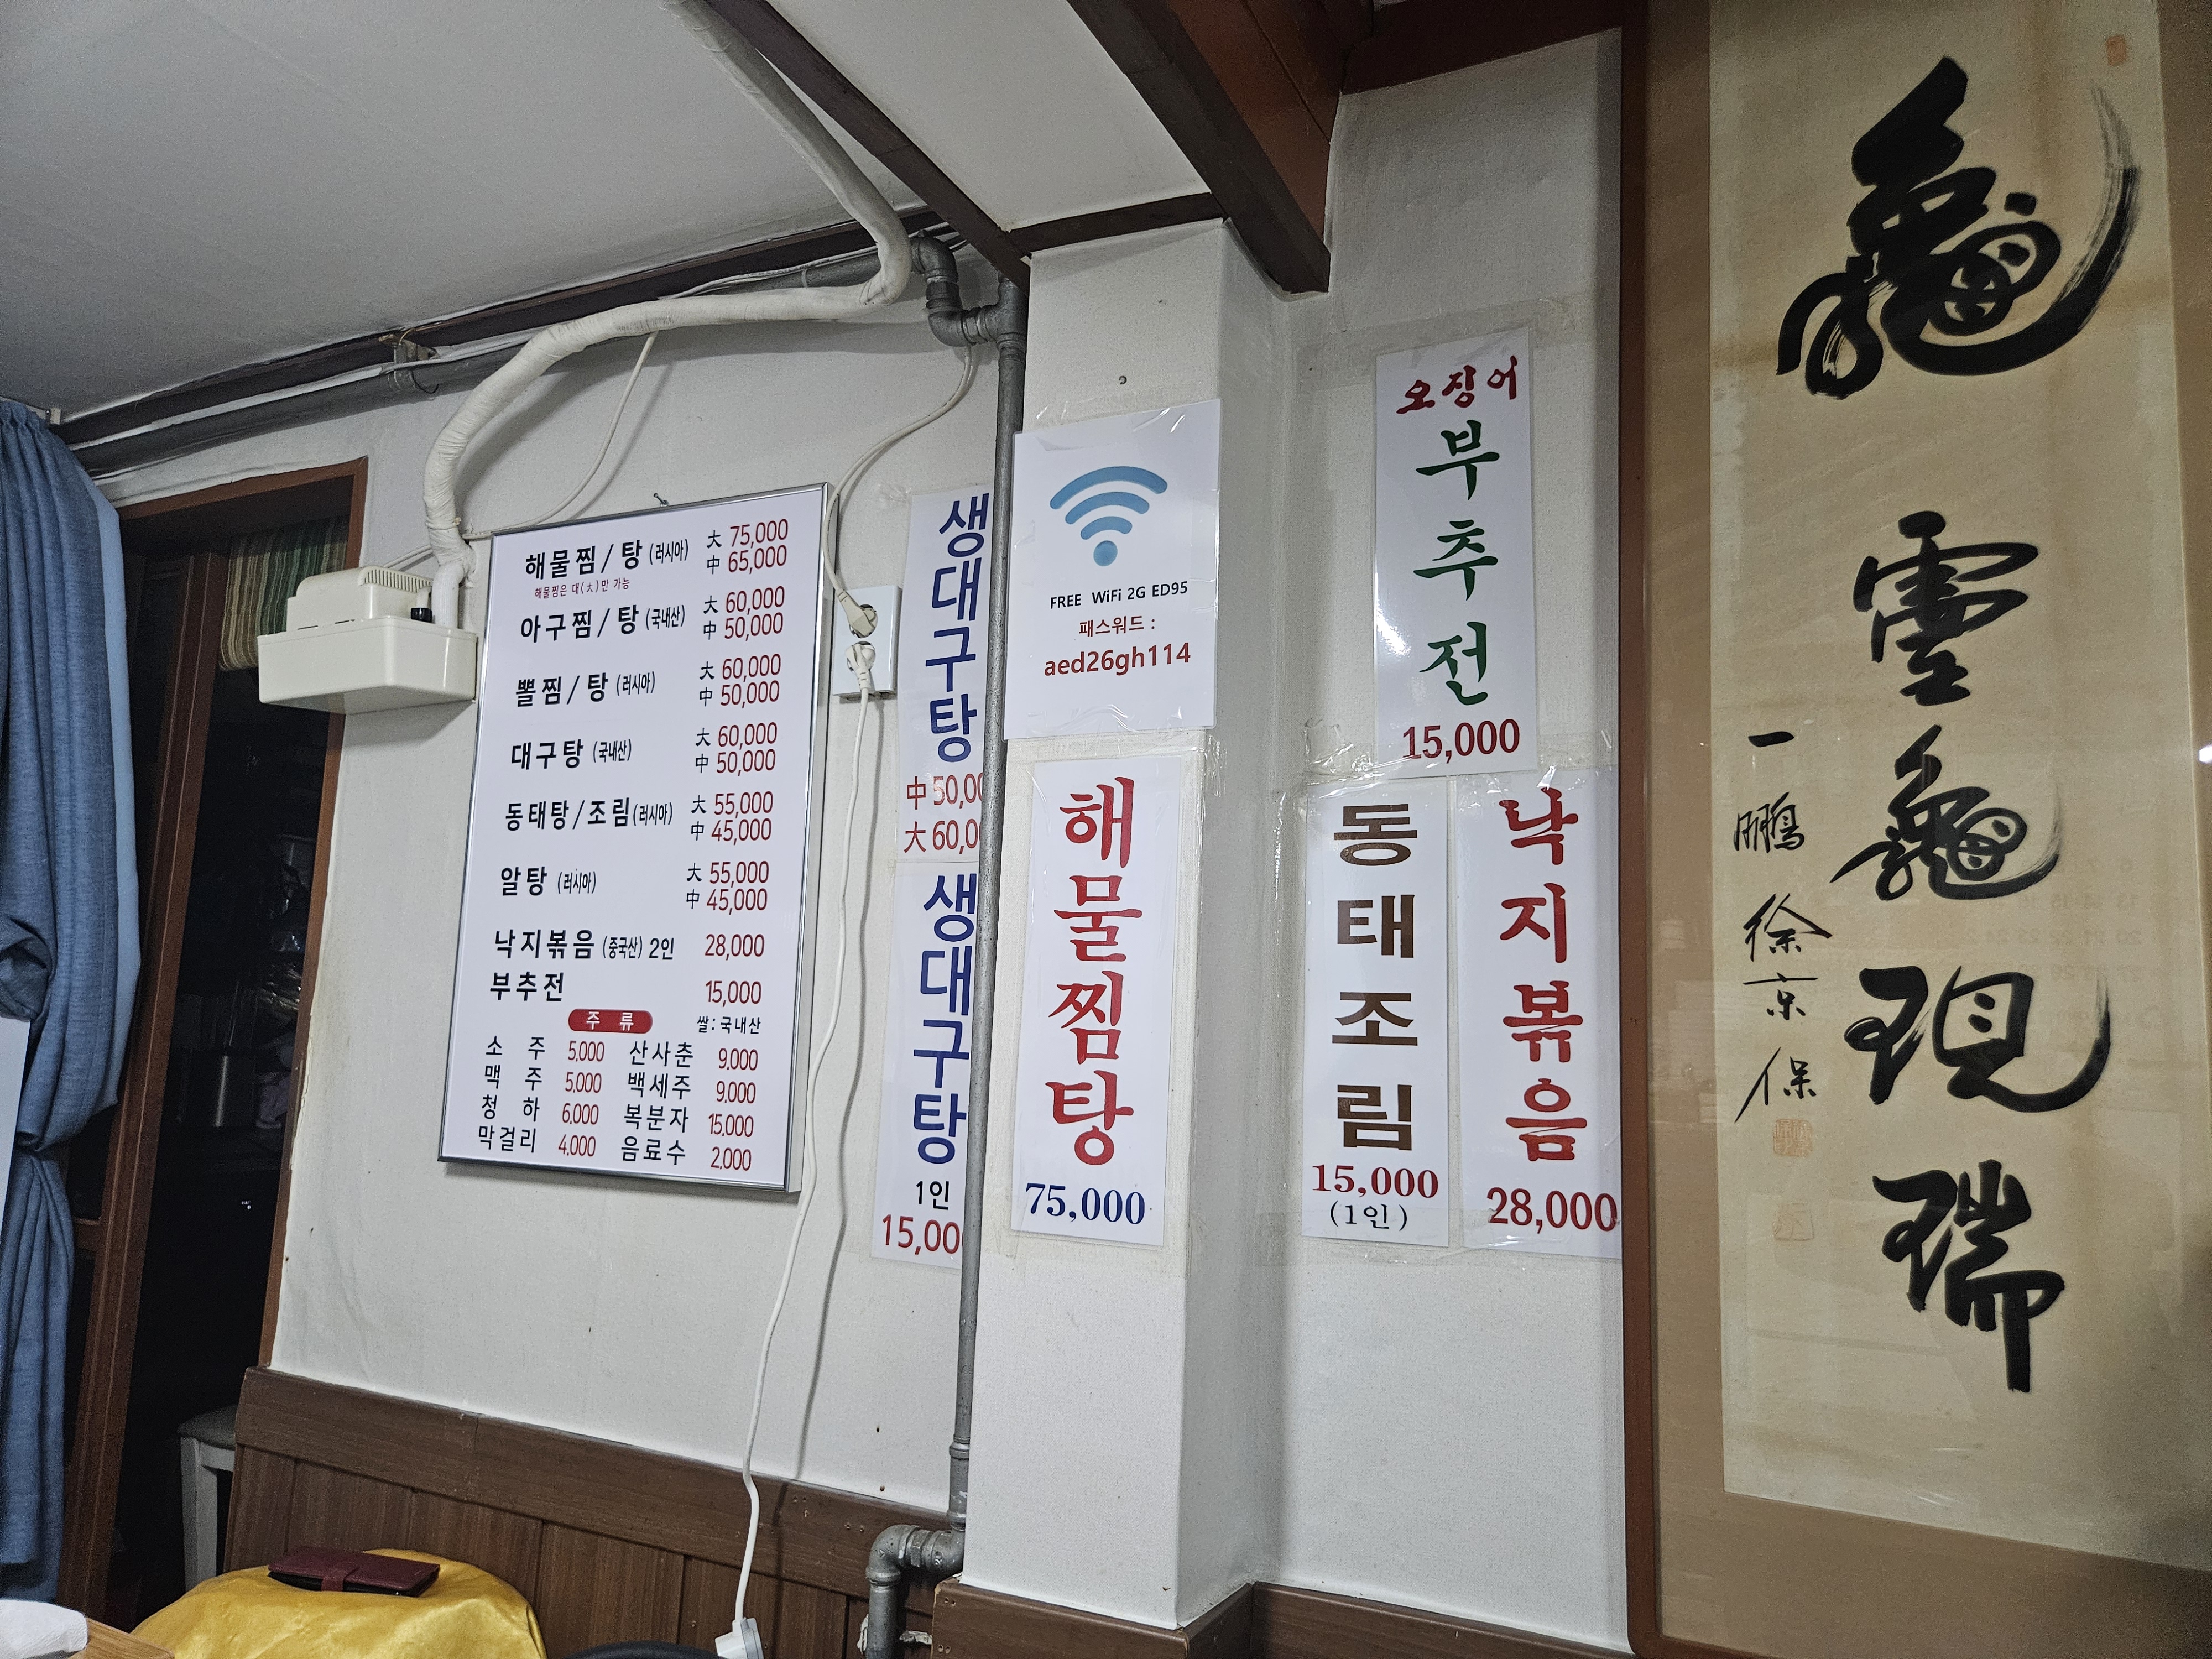 해물찜/탕 (러시아) 大 75,000
中 65,000
해물찜은 대(大)만 가능
아구찜/탕 (국내산) 大 60,000
中 50,000
뽈찜/탕 (러시아) 大 60,000
中 50,000
대구탕 (국내산) 大 60,000
中 50,000
동태탕/조림 (러시아) 大 55,000
中 45,000
알탕 (러시아) 大 55,000
中 45,000
낙지볶음 (중국산) 2인 28,000
부추전 15,000
주 류 쌀: 국내산
소 주 5,000 산사춘 9,000
맥 주 5,000 백세주 9,000
청 하 6,000 복분자 15,000
막걸리 4,000 음료수 2,000
생대구탕
中 50,00
大 60,0
생대구탕
1인
15,00
FREE WiFi 2G ED95
패스워드 :
aed26gh114
해물찜탕
75,000
오징어
부추전
15,000
동태조림
15,000
(1인)
낙지볶음
28,000
龜
靈龜現瑞
一鵬 徐京保